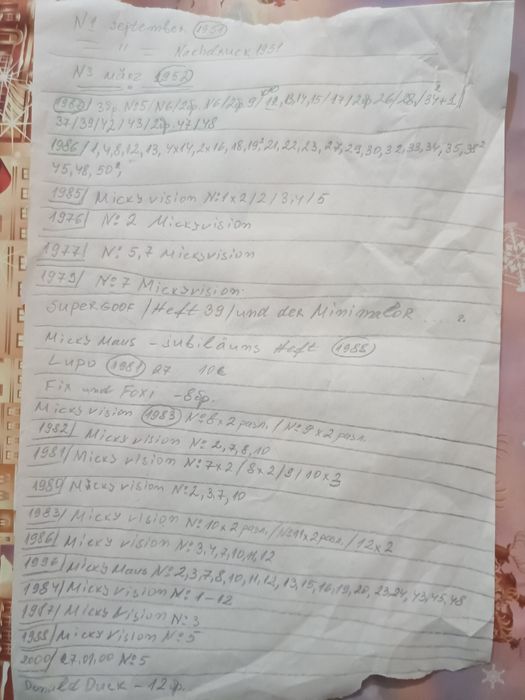 Nº1 September 1951
— " — Nachdruck 1951
Nº3 März 1952
37/39/42/43/2бр. 47/48
1986/1,4,8,12,13, 4x14, 2x16, 18,19²,21,22,23,27,29,30,32,33,34,35,38²
45,48,50²,
1985/ Micky vision Nº1x2/2/3,4/5
1976/ Nº2 Mickyvision
1977/ Nº5,7 Mickyvision
1979/ Nº7 Mickyvision.
SUPERGOOF /Heft 39/und der Minimator .... 2.
Micky Maus - Jubiläums Heft 1988
Lupo 1981 27 10€
Fix und Foxi - 8бр.
Micky vision 1983 Nº8x2 разл./Nº9x2 разл.
1982/ Micky vision Nº2,7,8,10
1981/ Micky vision Nº7x2/8x2/9/10x3
Micky vision Nº2,3,7,10
1983/ Micky vision Nº10x2 разл./Nº11x2 разл./12x2
1986/ Micky vision Nº3,4,7,10,11,12
1996/ Micky Maus Nº2,3,7,8,10,11,12,13,15,16,19,20,23,24,43,45,48
1984/ Micky Vision Nº1-12
1987/ Micky Vision Nº3
1988/ Micky Vision Nº5
2000/ 27.01.00 Nº5
Donald Duck - 12бр.